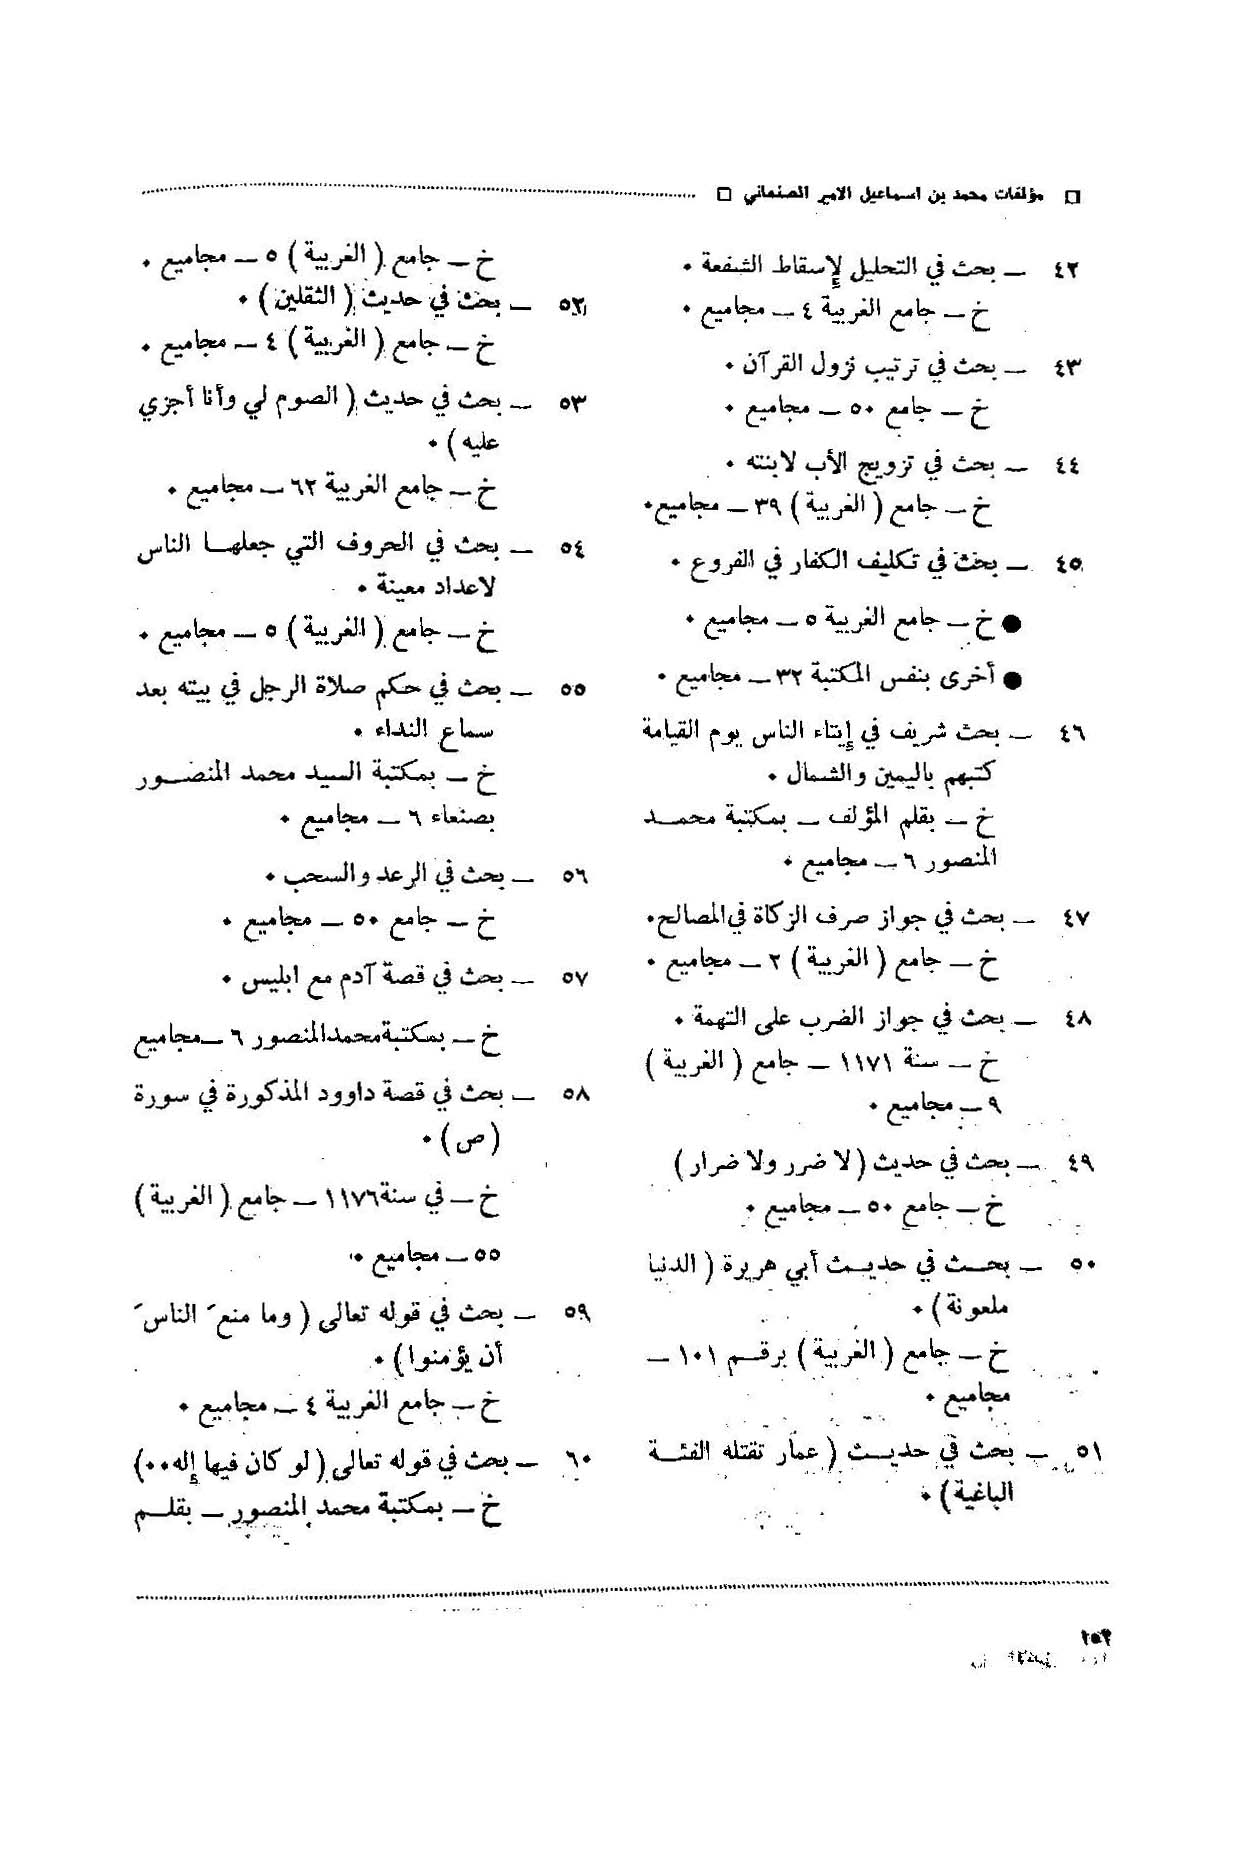 □ مؤلفات محمد بن اسماعيل الامير الصنعاني □
٤٢ — بحث في التحليل لإسقاط الشفعة ٠
خ — جامع الغربية ٤ — مجاميع ٠
٤٣ — بحث في ترتيب نزول القرآن ٠
خ — جامع ٥٠ — مجاميع ٠
٤٤ — بحث في تزويج الأب لابنته ٠
خ — جامع ( الغربية ) ٣٩ — مجاميع٠
٤٥ — بحث في تكليف الكفار في الفروع ٠
● خ — جامع الغربية ٥ — مجاميع ٠
● أخرى بنفس المكتبة ٣٢ — مجاميع ٠
٤٦ — بحث شريف في إيتاء الناس يوم القيامة
كتبهم باليمين والشمال ٠
خ — بقلم المؤلف — بمكتبة محمـد
المنصور ٦ — مجاميع ٠
٤٧ — بحث في جواز صرف الزكاة في المصالح٠
خ — جامع ( الغربية ) ٢ — مجاميع ٠
٤٨ — بحث في جواز الضرب على التهمة ٠
خ — سنة ١١٧١ — جامع ( الغربية )
٩ — مجاميع ٠
٤٩ — بحث في حديث ( لا ضرر ولا ضرار )
خ — جامع ٥٠ — مجاميع ٠
٥٠ — بحـث في حديـث أبي هريرة ( الدنيا
ملعونة ) ٠
خ — جامع ( الغربية ) برقـم ١٠١ —
مجاميع ٠
٥١ — بحث في حديـث ( عمار تقتله الفئـة
الباغية ) ٠
خ — جامع ( الغربية ) ٥ — مجاميع ٠
٥٢ — بحث في حديث ( الثقلين ) ٠
خ — جامع ( الغربية ) ٤ — مجاميع ٠
٥٣ — بحث في حديث ( الصوم لي وأنا أجزي
عليه ) ٠
خ — جامع الغربية ٦٢ — مجاميع ٠
٥٤ — بحث في الحروف التي جعلهـا الناس
لاعداد معينة ٠
خ — جامع ( الغربية ) ٥ — مجاميع ٠
٥٥ — بحث في حكم صلاة الرجل في بيته بعد
سماع النداء ٠
خ — بمكتبة السيد محمد المنصـور
بصنعاء ٦ — مجاميع ٠
٥٦ — بحث في الرعد والسحب ٠
خ — جامع ٥٠ — مجاميع ٠
٥٧ — بحث في قصة آدم مع ابليس ٠
خ — بمكتبة محمد المنصور ٦ — مجاميع
٥٨ — بحث في قصة داوود المذكورة في سورة
( ص ) ٠
خ — في سنة ١١٧٦ — جامع ( الغربية )
٥٥ — مجاميع ٠
٥٩ — بحث في قوله تعالى ( وما منعَ الناسَ
أن يؤمنوا ) ٠
خ — جامع الغربية ٤ — مجاميع ٠
٦٠ — بحث في قوله تعالى ( لو كان فيها إله ٠٠ )
خ — بمكتبة محمد المنصور — بقلـم